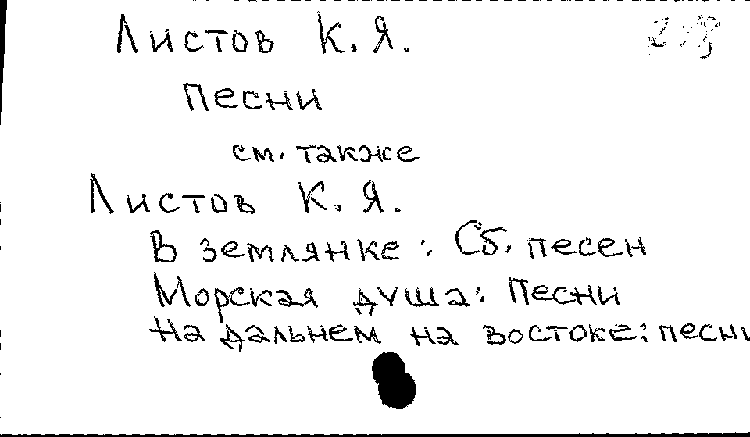 Листов К. Я.
Песни
см. также
Листов К. Я.
В землянке: Сб. песен
Морская душа: Песни
На дальнем на востоке: песни